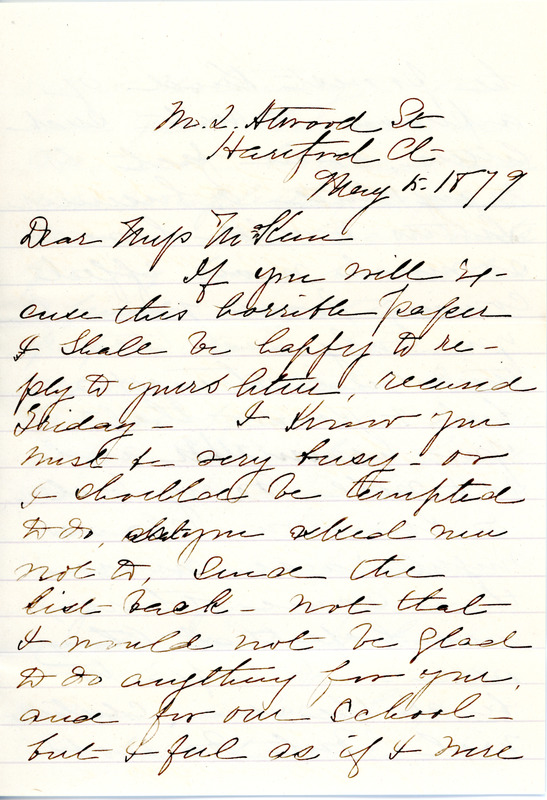 No. 2. Atwood St
Hartford Ct-
May 15. 1879
Dear Miss McKeen
If you will ex-
cuse this horrible paper
I shall be happy to re-
ply to your letter, received
Friday - I know you
must be very busy - or
I should be tempted
to do, what you asked me
not to, send the
list back - not that
I would not be glad
to do anything for you,
and for our school -
but I feel as if I were